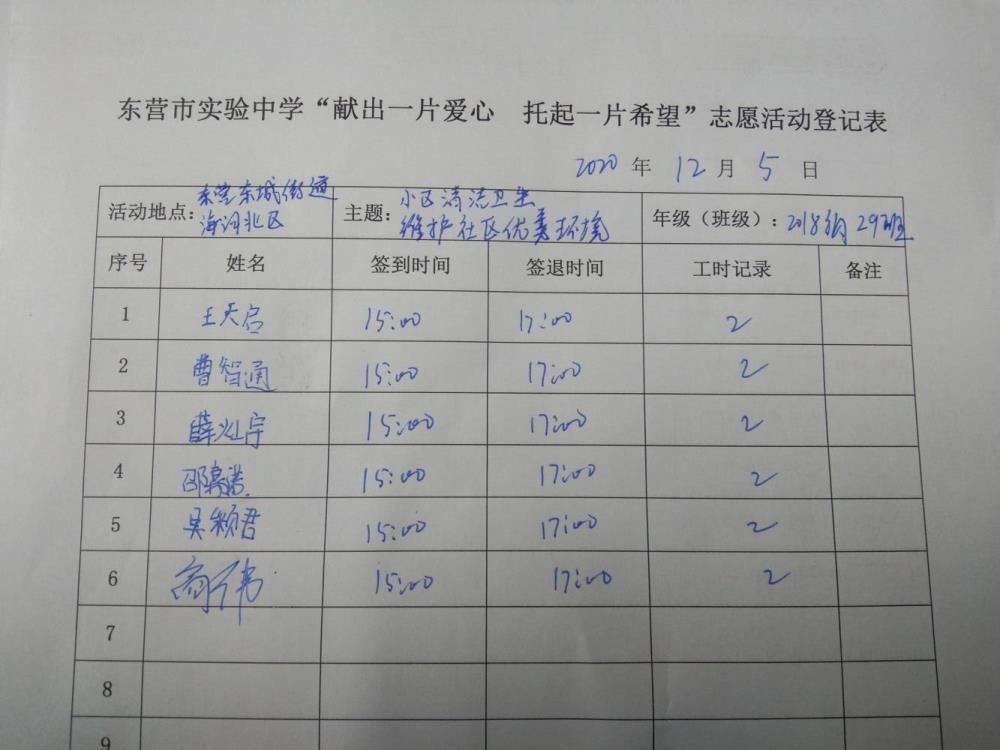 东营市实验中学“献出一片爱心 托起一片希望”志愿活动登记表
2020 年 12 月 5 日
活动地点：东营东城街道海河北区 主题：小区清洁卫生维护社区优美环境 年级（班级）：2018级29班
序号 姓名 签到时间 签退时间 工时记录 备注
1 王天启 15:00 17:00 2
2 曹智通 15:00 17:00 2
3 薛灿宇 15:00 17:00 2
4 邵 15:00 17:00 2
5 吴颖君 15:00 17:00 2
6 商伟 15:00 17:00 2
7
8
9